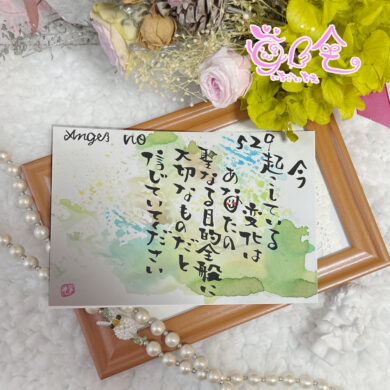 Anges no
520
今
起こしている
変化は
あなたの
聖なる目的全般に
大切なものだと
信じていてください